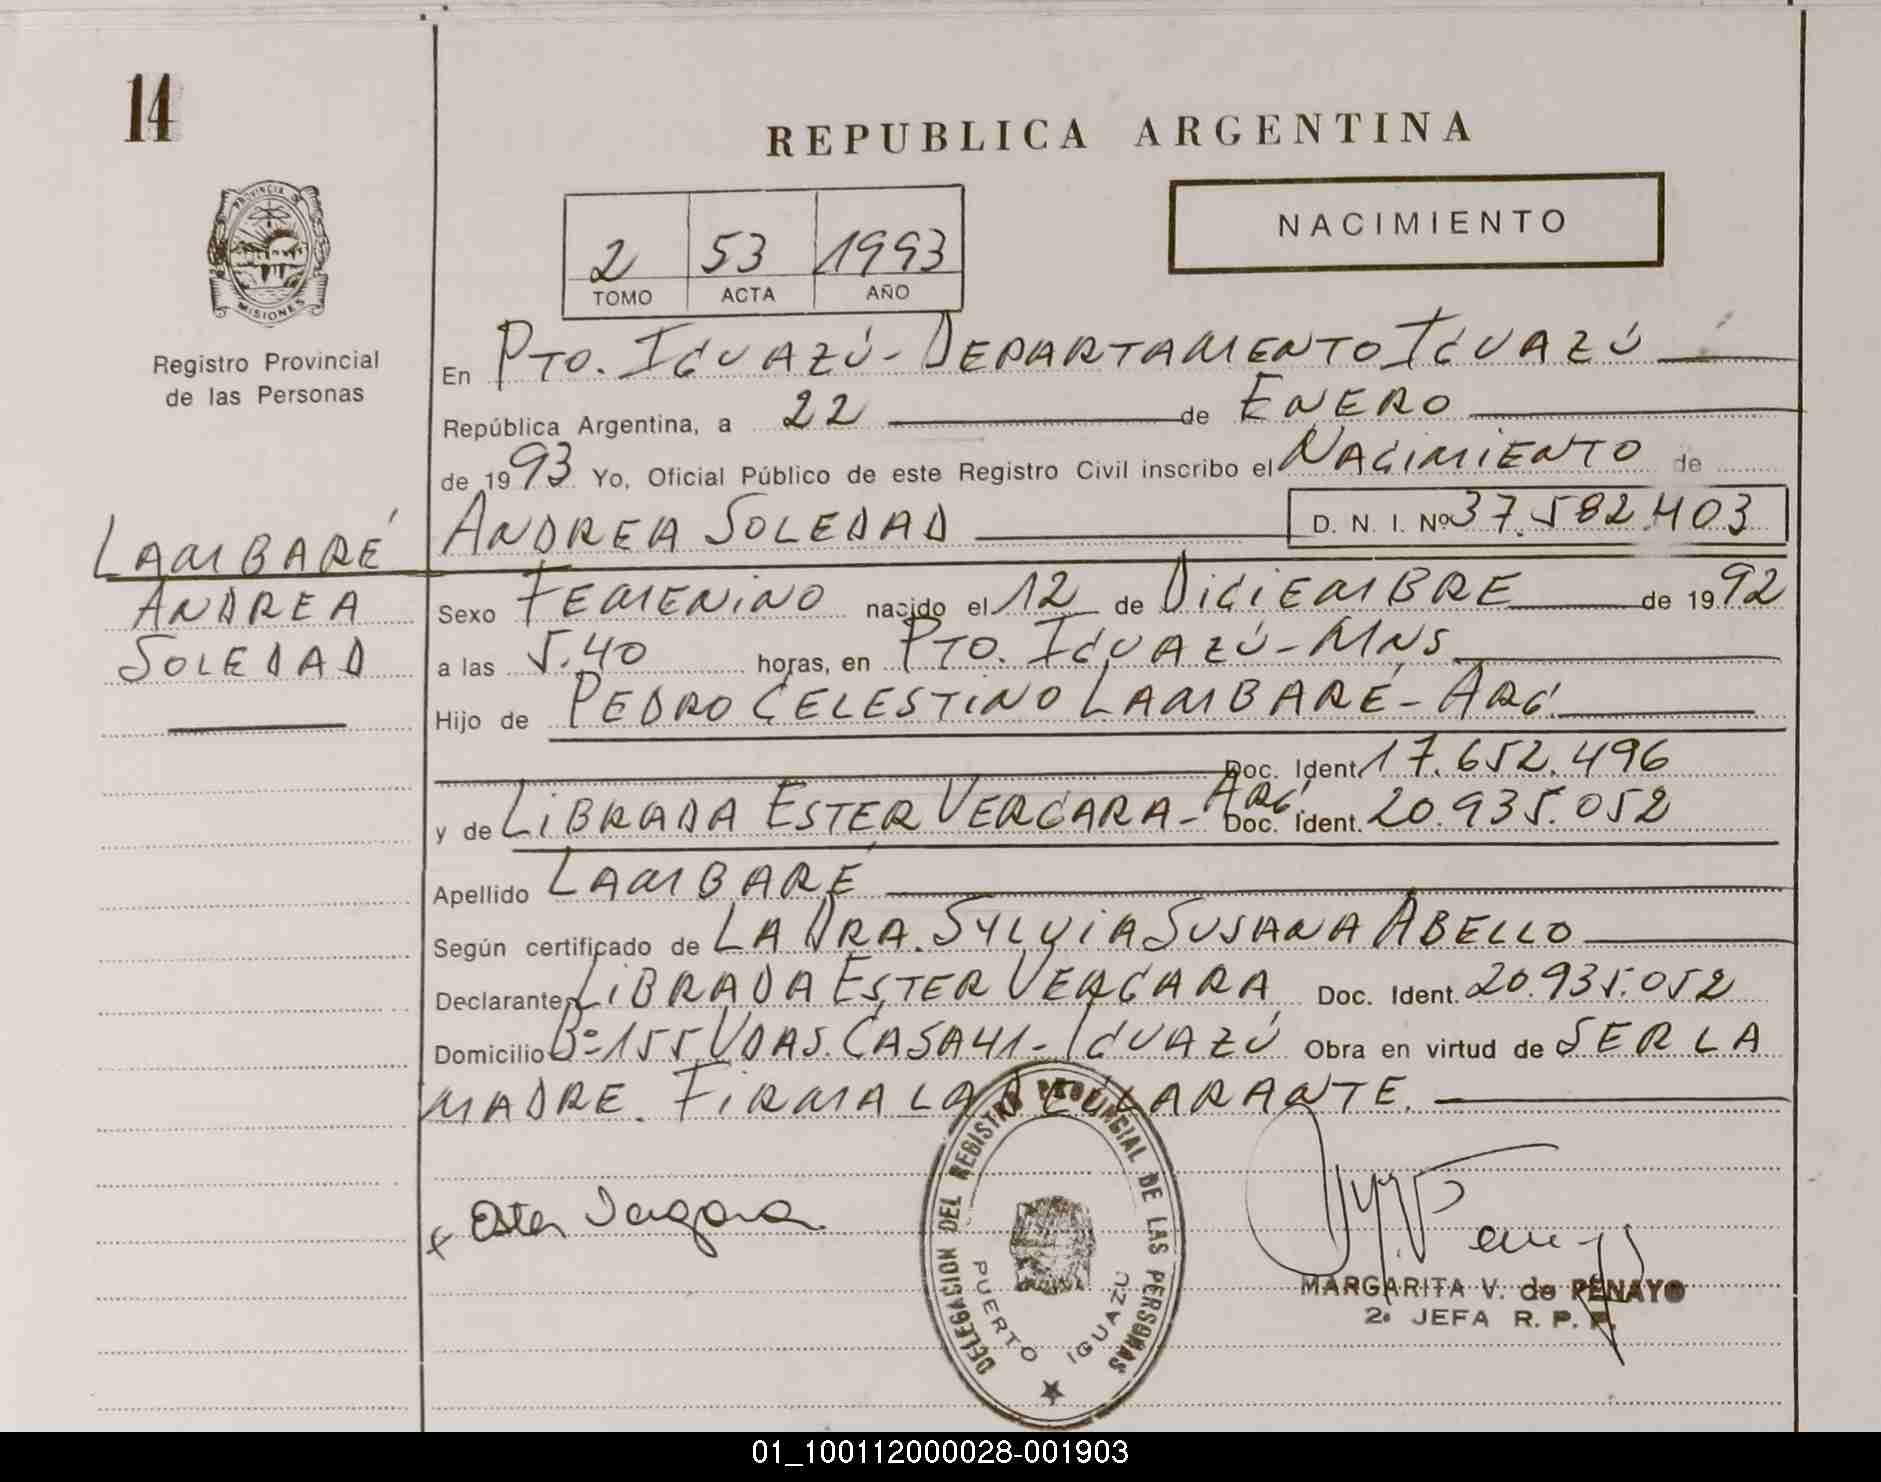 14
REPUBLICA ARGENTINA
NACIMIENTO
2 53 1993
TOMO ACTA AÑO
PROVINCIA DE
MISIONES
Registro Provincial
de las Personas
LAMBARÉ
ANDREA
SOLEDAD
En PTO. IGUAZÚ - DEPARTAMENTO IGUAZÚ
República Argentina, a 22 de ENERO
de 1993 Yo, Oficial Público de este Registro Civil inscribo el NACIMIENTO de
ANDREA SOLEDAD D. N. I. Nº 37.582.403
Sexo FEMENINO nacido el 12 de DICIEMBRE de 1992
a las 5.40 horas, en PTO. IGUAZÚ - MNS.
Hijo de PEDRO CELESTINO LAMBARÉ - ARG.
Doc. Ident. 17.652.496
y de LIBRADA ESTER VERGARA - ARG. Doc. Ident. 20.935.052
Apellido LAMBARÉ
Según certificado de LA DRA. SYLVIA SUSANA ABELLO
Declarante LIBRADA ESTER VERGARA Doc. Ident. 20.935.052
Domicilio Bº 155 VDAS. CASA 41 - IGUAZÚ Obra en virtud de SER LA
MADRE. FIRMA LA DECLARANTE.
x Ester Vergara
DELEGACION DEL REGISTRO PROVINCIAL DE LAS PERSONAS
PUERTO IGUAZU
MARGARITA V. de PENAYO
2ª JEFA R. P. P.
01_100112000028-001903